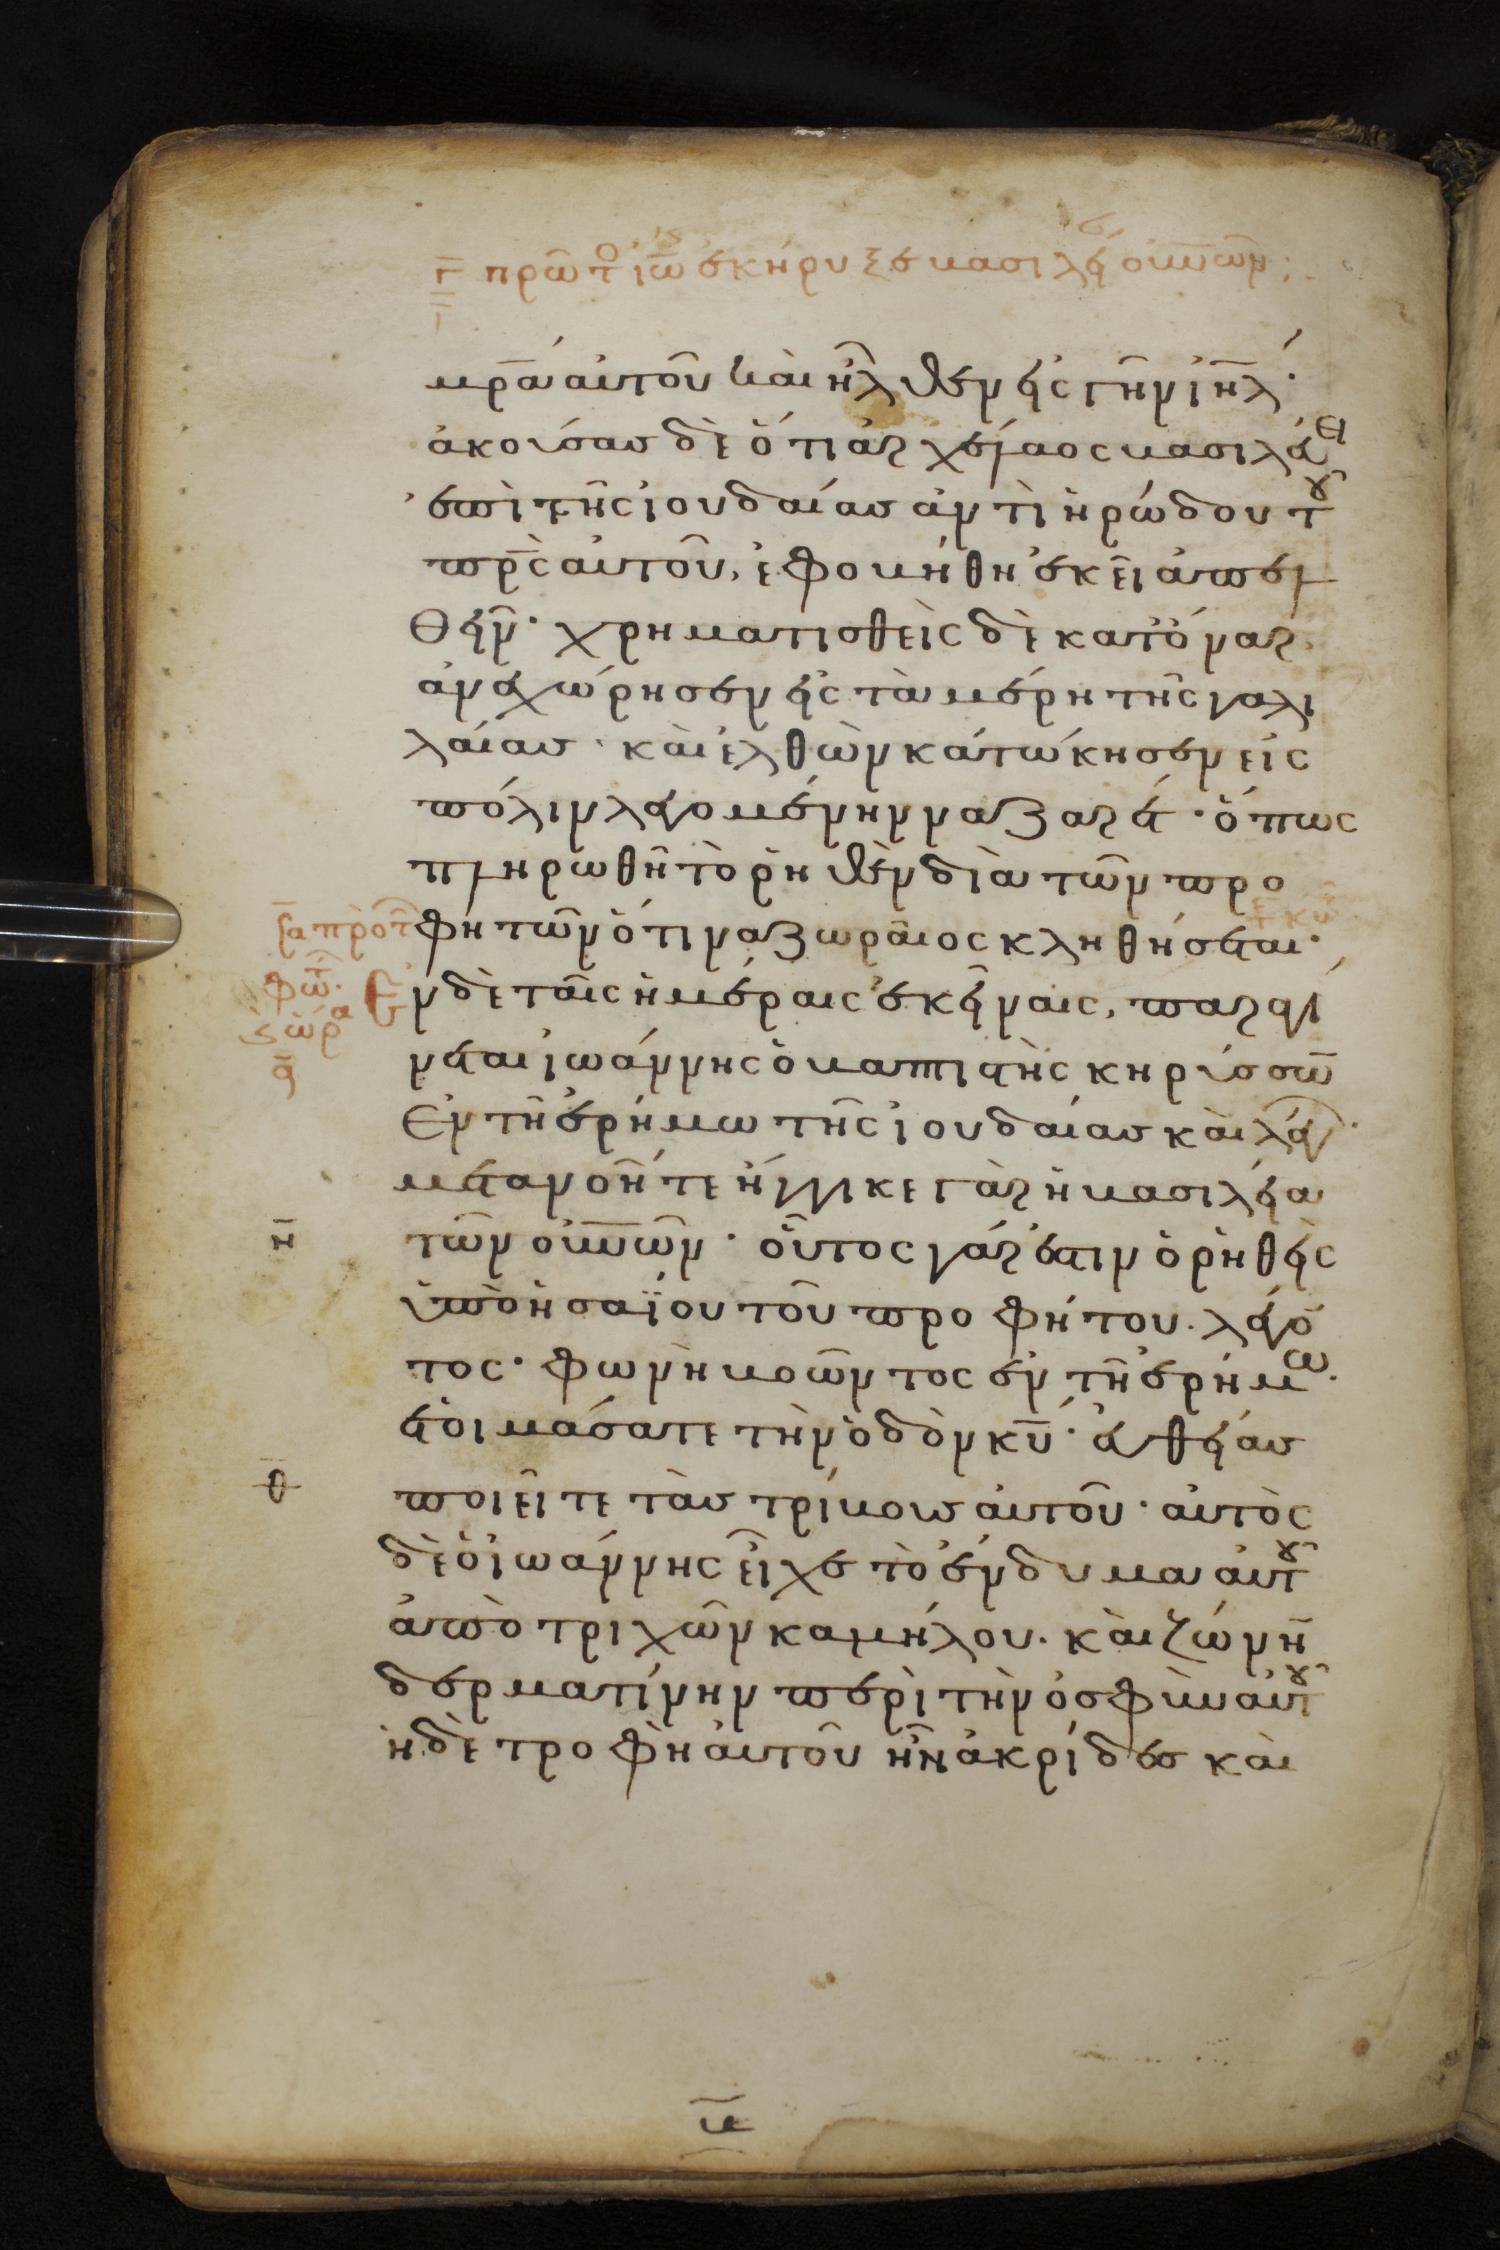 γ πρῶτο ἰω ἐκήρυξε βασιλεί οὐνῶν :
μρα αὐτοῦ καὶ ἦλθεν εἰς γῆν ιηλ·
ἀκούσας δὲ ὅτι ἀρχέλαος βασιλεύει
ἐπὶ τῆς ἰουδαίας ἀντὶ ἡρώδου τοῦ
πρς αὐτοῦ, ἐφοβήθη ἐκεῖ ἀπελ
θεῖν· χρηματισθεὶς δὲ κατ ὄναρ
ἀνεχώρησεν εἰς τὰ μέρη τῆς γαλι
λαίας · καὶ ἐλθὼν κατώκησεν εἰς
πόλιν λεγομένην ναζαρέτ · ὅπως
πληρωθῆ τὸ ῥηθὲν διὰ τῶν προ
φητῶν ὅτι ναζωραῖος κληθήσεται·
πρὸ τ
φω
ὥρα
α
Ἐν δὲ ταῖς ἡμέραις ἐκείναις, παραγί
νεται ἰωάννης ὁ βαπτιστὴς κηρύσσω
Ἐν τῆ ἐρήμω τῆς ἰουδαίας καὶ λέγων·
μετανοῆτε ἤγγικε γὰρ ἡ βασιλεία
η
τῶν οὐνῶν · οὗτος γάρ ἐστιν ὁ ῥηθεὶς
ὑπὸ ἡσαΐου τοῦ προφήτου. λέγο
τος· φωνὴ βοῶντος ἐν τῆ ἐρήμω.
ἑτοιμάσατε τὴν ὁδὸν κυ · εὐθείας
θ
ποιεῖτε τὰς τρίβους αὐτοῦ · αὐτὸς
δὲ ὁ ἰωάννης εἶχε τὸ ἔνδυμα αὐτοῦ
ἀπὸ τριχῶν καμήλου. καὶ ζώνη
δερματίνην περὶ τὴν ὀσφὺν αὐτοῦ
ἡ δὲ τροφὴ αὐτοῦ ἦν ἀκρίδες καὶ